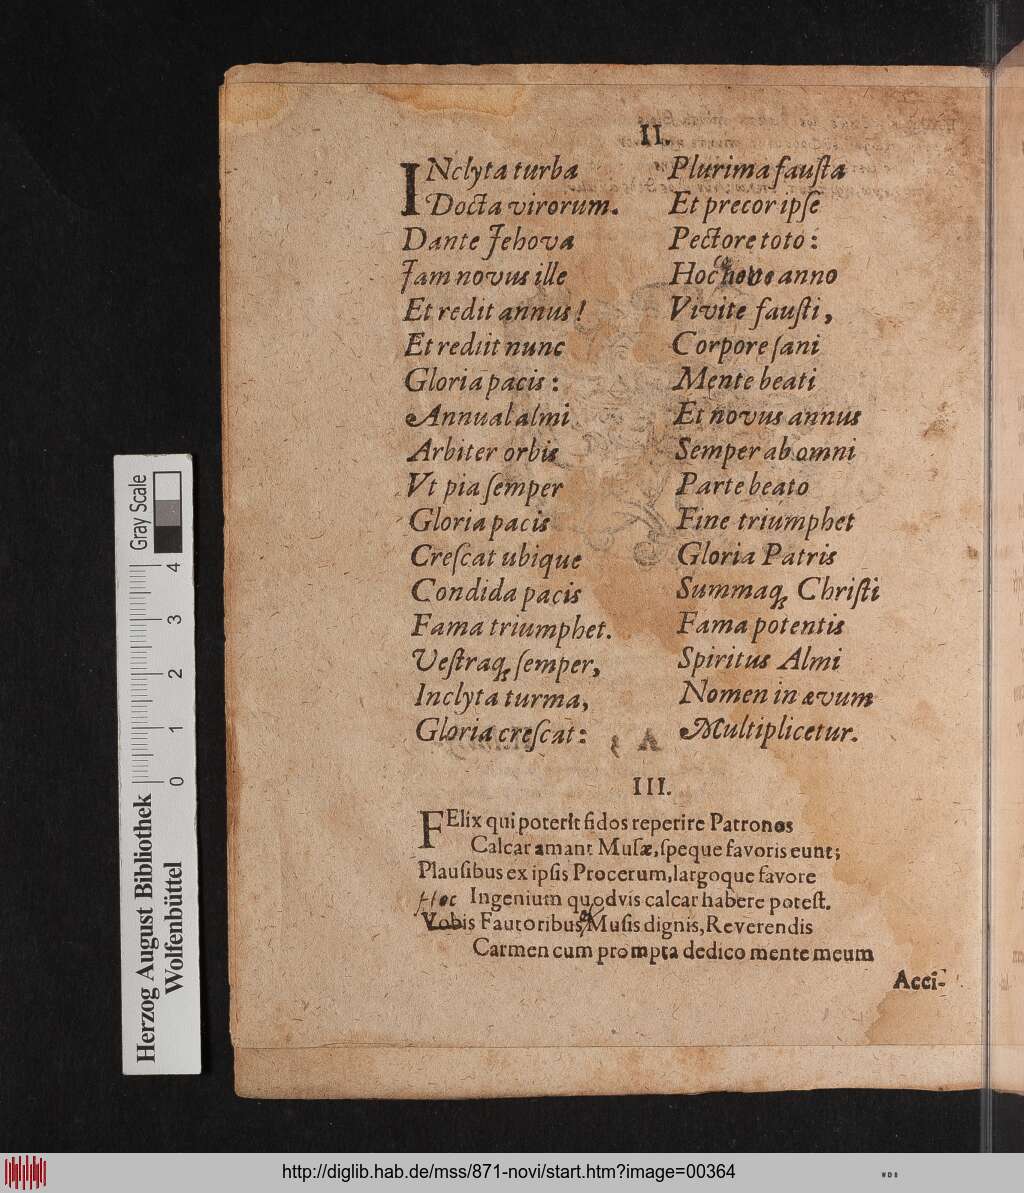 II.
INclyta turba
Docta virorum.
Dante Jehova
Jam novus ille
Et redit annus!
Et rediit nunc
Gloria pacis:
Annual almi
Arbiter orbis
Vt pia ſemper
Gloria pacis
Creſcat ubique
Condida pacis
Fama triumphet.
Veſtraq; ſemper,
Inclyta turma,
Gloria creſcat:
Plurima fauſta
Et precor ipſe
Pectore toto:
Hoc novo anno
Vivite fauſti,
Corpore ſani
Mente beati
Et novus annus
Semper ab omni
Parte beato
Fine triumphet
Gloria Patris
Summaq; Chriſti
Fama potentis
Spiritus Almi
Nomen in ævum
Multiplicetur.
III.
FElix qui poterit fidos reperire Patronos
Calcar amant Muſæ, ſpeque favoris eunt;
Plauſibus ex ipſis Procerum, largoque favore
Hoc Ingenium quodvis calcar habere poteſt.
Vobis Fautoribus, & Muſis dignis, Reverendis
Carmen cum prompta dedico mente meum
Acci-
Herzog August Bibliothek
Wolfenbüttel
Gray Scale
0 1 2 3 4
http://diglib.hab.de/mss/871-novi/start.htm?image=00364